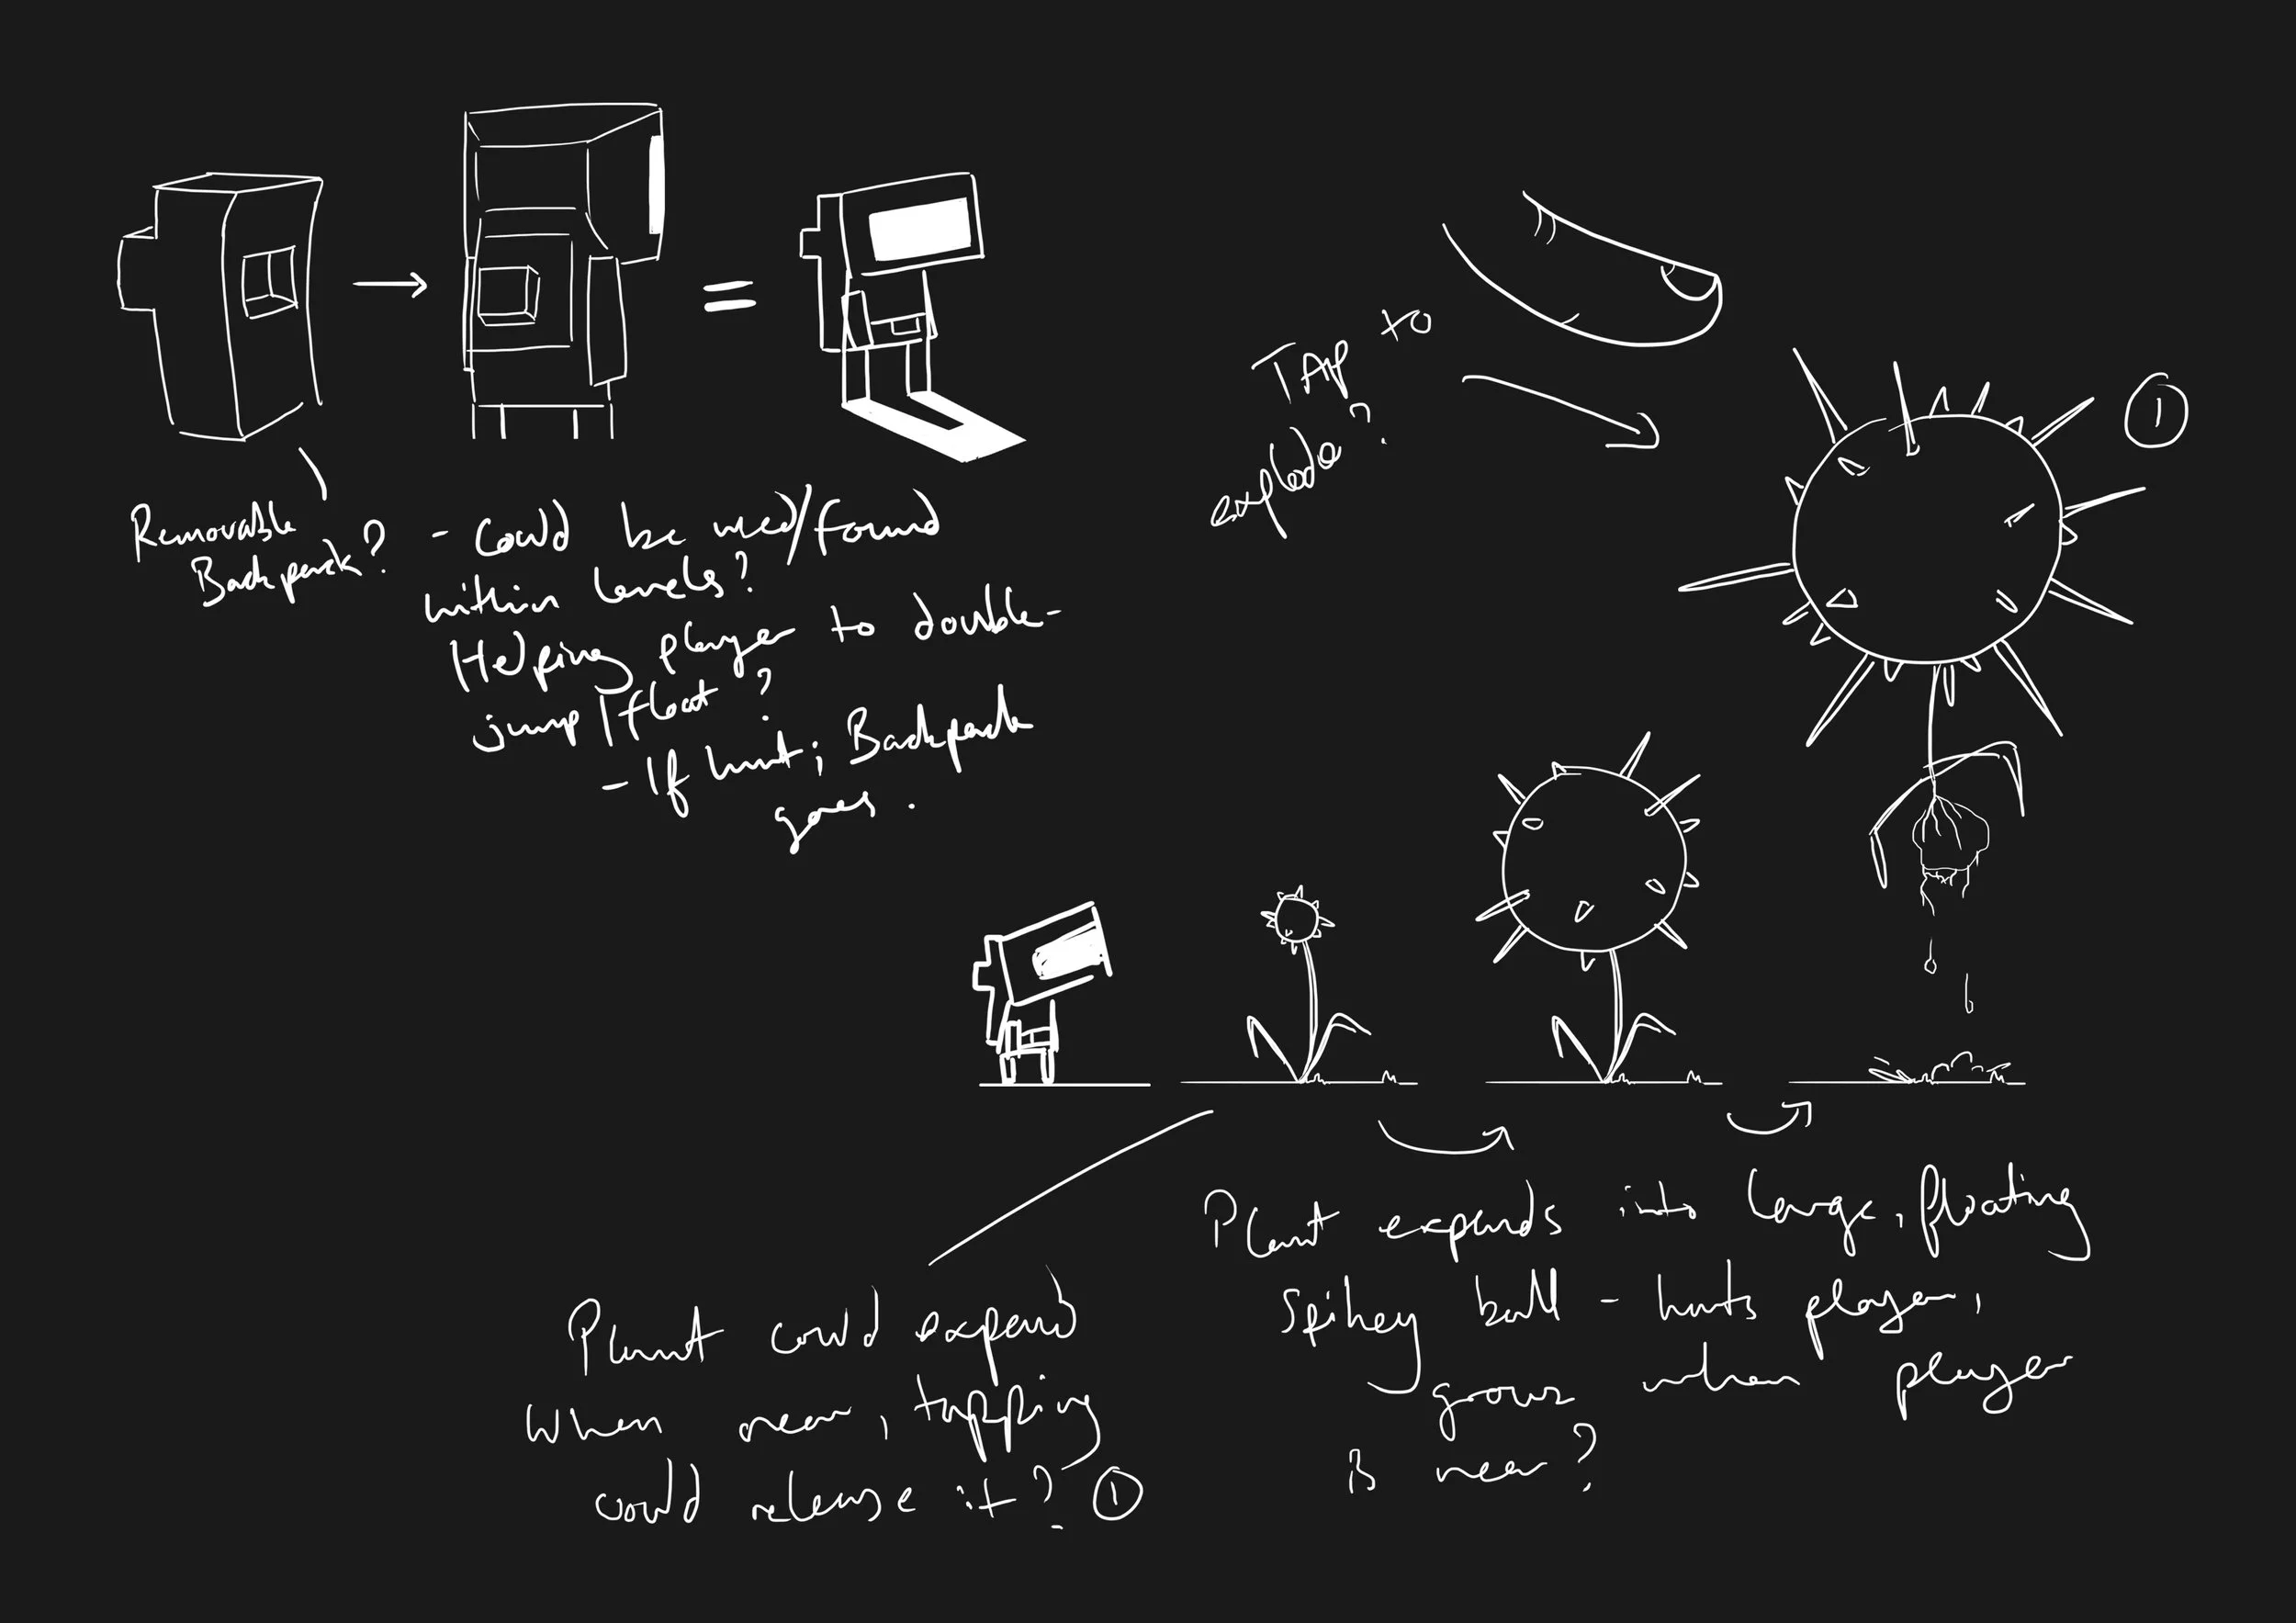 Removable
Backpack?
- Could be used/found
within levels?
Helping player to double-
jump/float?
- If hurt; Backpack
goes.
TAP to
explode?
1
Plant expands into large, floating
Spikey ball - hunts player,
grows when player
is near?
Plant could expand
when near, tapping
could release it? 1